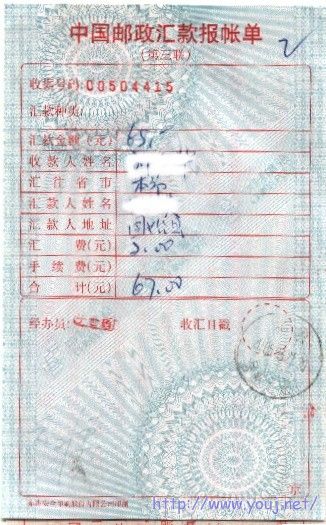 中国邮政汇款报帐单
(第三联)
2
收据号码 00504415
汇款种类
汇款金额(元) 65.—
收款人姓名
汇往省市 本市
汇款人姓名
汇款人地址
汇费(元) 2.00
手续费(元)
合计(元) 67.00
经办员: 收汇日戳
http://www.youj.net/